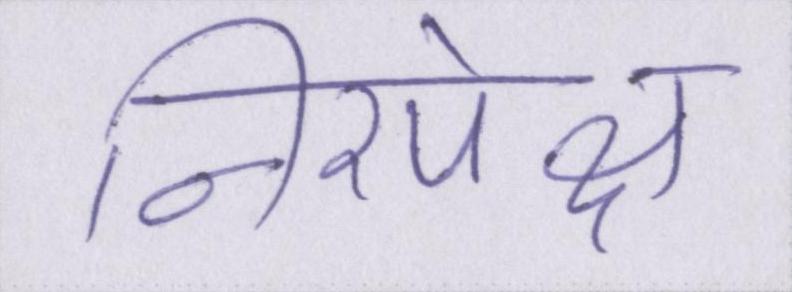 निरपेक्ष